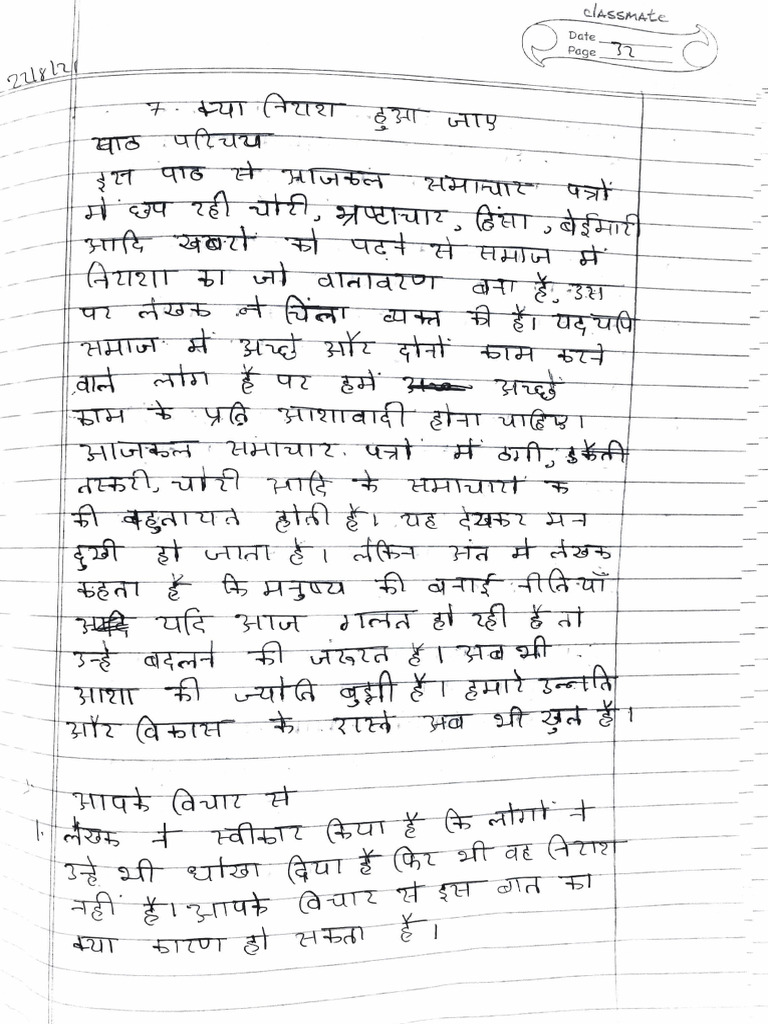 classmate
Date
Page 32
22/8/21
7. क्या निराश हुआ जाए
पाठ परिचय
इस पाठ से आजकल समाचार पत्रों
में छप रही चोरी, भ्रष्टाचार, हिंसा, बेईमारी
आदि खबरों को पढ़ने से समाज में
निराशा का जो वातावरण बना है, उस
पर लेखक ने चिंता व्यक्त की है। यद्यपि
समाज में अच्छे और दोनों काम करने
वाले लोग है पर हमें अच्छे
काम के प्रति आशावादी होना चाहिए।
आजकल समाचार पत्रों में ठगी, डकैती
तस्करी, चोरी आदि के समाचारों क
की बहुतायत होती है। यह देखकर मन
दुखी हो जाता है। लेकिन अंत में लेखक
कहता है कि मनुष्य की बनाई नीतियाँ
यदि आज गलत हो रही है तो
उन्हे बदलने की जरुरत है। अब भी
आशा की ज्योति बुझी है। हमारे उन्नति
और विकास के रास्ते अब भी खुले है।
आपके विचार से
1. लेखक ने स्वीकार किया है कि लोगों ने
उन्हे भी धोखा दिया है फिर भी वह निराश
नहीं है। आपके विचार से इस बात का
क्या कारण हो सकता है।